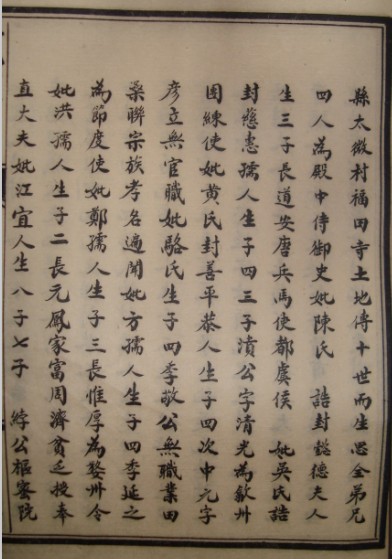 縣太微村福田寺土地傳十世而生思金弟兄
四人為殿中侍御史妣陳氏　誥封懿德夫人
生三子長道安唐兵馬使都虞侯　妣吳氏誥
封慈惠孺人生子四三子濆公字清光為歙州
團練使妣黃氏封善平恭人生子四次中元字
彥立無官職妣駱氏生子四季敬公無職業田
桑聯宗族孝名遍聞妣方孺人生子四季延之
為節度使妣鄭孺人生子三長惟厚為婺州令
妣洪孺人生子二長元鳳家富周濟貧乏授奉
直大夫妣江宜人生八子七子　綍公樞密院